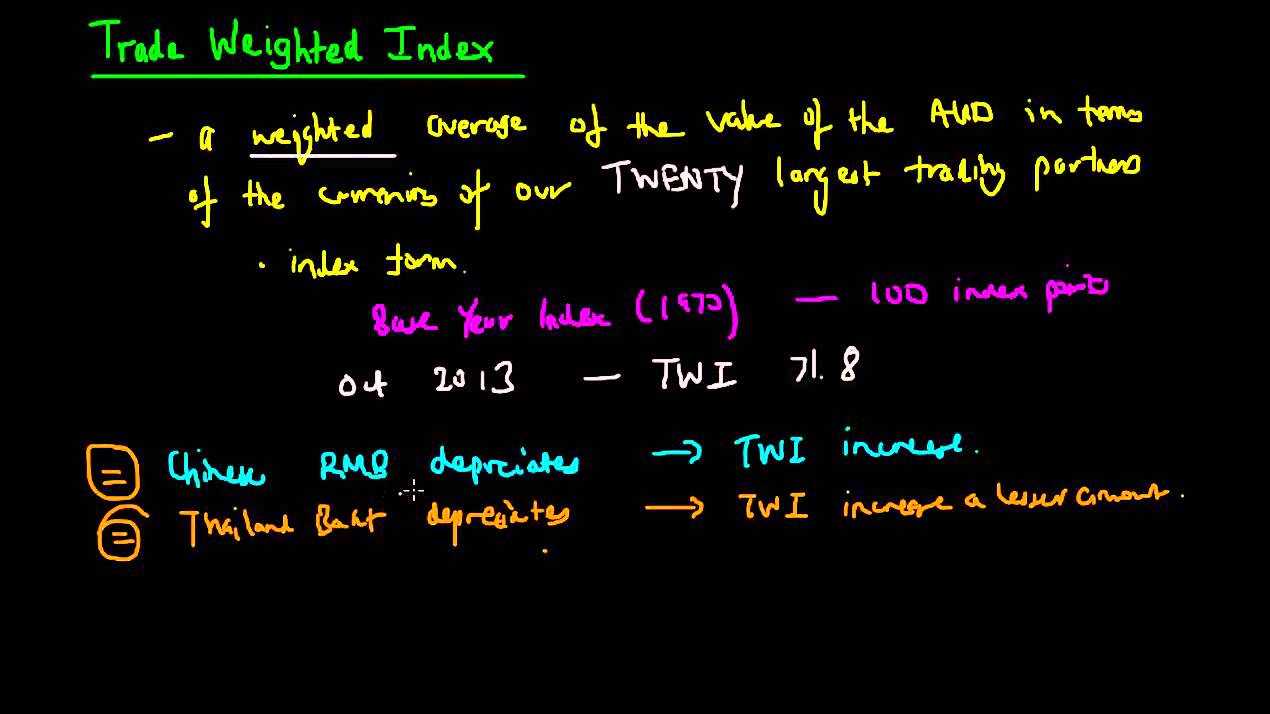 Trade Weighted Index
- a weighted average of the value of the AUD in terms
of the currencies of our TWENTY largest trading partners
• index form.
Base Year Index (1970) — 100 index points
Oct 2013 — TWI 71.8
= Chinese RMB depreciates → TWI increase.
= Thailand Baht depreciates → TWI increase a lesser amount.